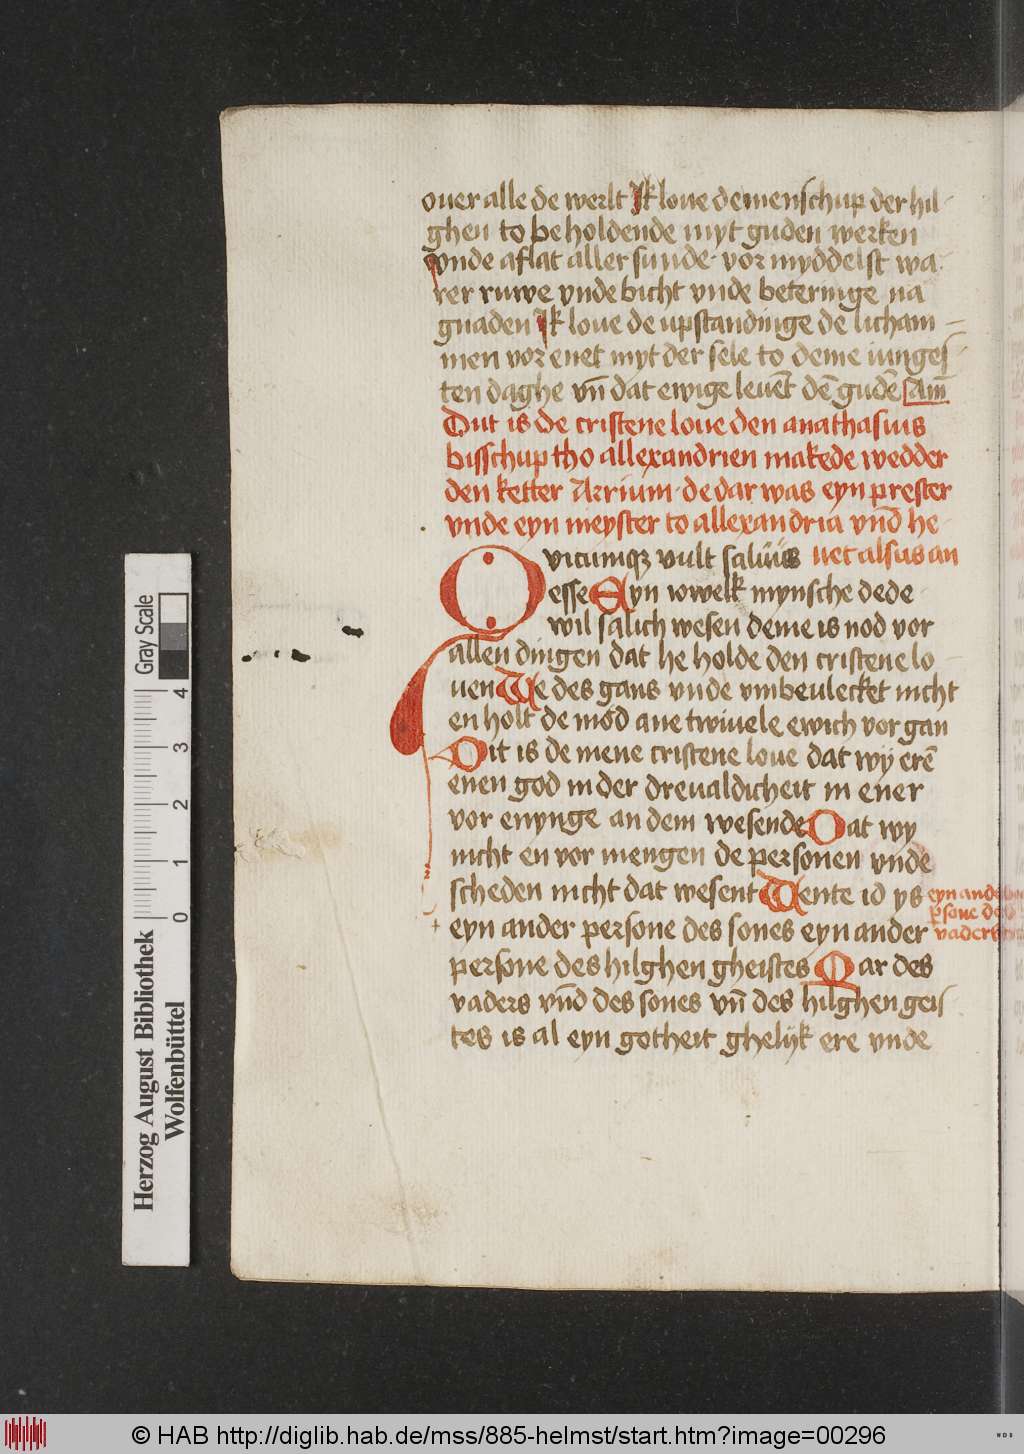 ouer alle de werlt Ik loue de menschup der hil
ghen to beholdende myt guden werken
vnde aflat aller sunde · vor myddelst wa
rer ruwe vnde bicht vnde beteringe na
gnaden Ik loue de upstandinge de licham
men vor enet myt der sele to deme iunges
ten daghe vn̄ dat ewige leuēt dē gudē Am̄
Dut is de cristene loue den anathasius
bisschup tho allexandrien makede wedder
den ketter Arrium · de dar was eyn prester
vnde eyn meyster to allexandria vnd he
Qvicumqz vult saluus uet alsus an
esse Eyn iowelk mynsche dede
wil salich wesen deme is nod vor
allen dingen dat he holde den cristene lo
uen We des gans vnde vmbeulecket nicht
en holt de mod ane twiuele ewich vor gan
Dit is de mene cristene loue dat wy erē
enen god in der dreualdicheit in ener
vor enynge an dem wesende Dat wy
nicht en vor mengen de personen vnde
scheden nicht dat wesent Wente id ys eyn ande
psone de
vaders
eyn ander persone des sones eyn ander
persone des hilghen gheistes Dar des
vaders vnd des sones vn̄ des hilghen geis
tes is al eyn gotheit ghelijk ere vnde
Gray Scale
4
3
2
1
0
Herzog August Bibliothek
Wolfenbüttel
© HAB http://diglib.hab.de/mss/885-helmst/start.htm?image=00296